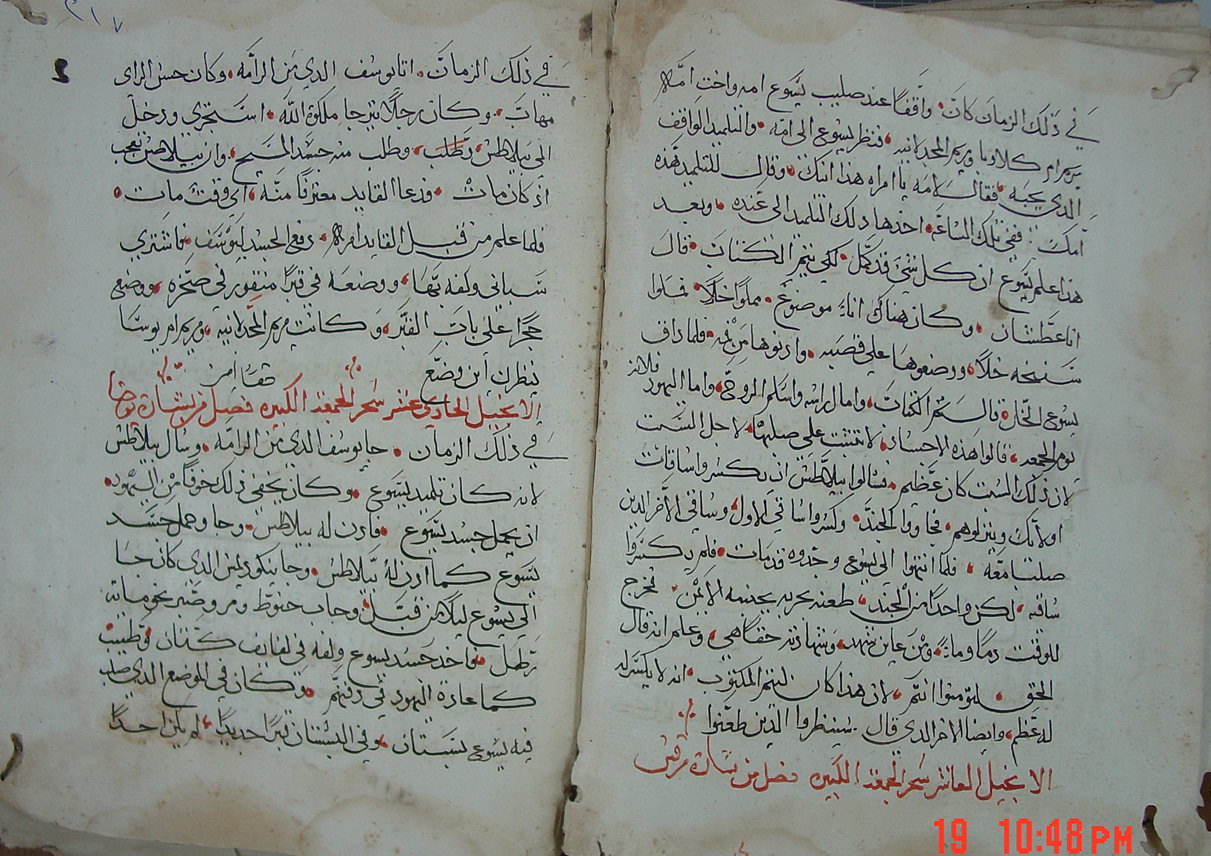 في ذلك الزمان كان واقفا عند صليب يسوع امه واخت امه
مريم ام كلاوبا ومريم المجدلانيه فنظر يسوع الي امه والتلميد الواقف
الدي يحبه فقال لامه يا امراه هذا ابنك وقال للتلميد هذه
امك ففي تلك الساعه اخدها دلك التلميد الي عنده وبعد
هذا علم يسوع ان كل شي قد كمل لكي يتم الكتاب قال
انا عطشان وكان هناك اناء موضوع مملوا خلا فملوا
سفنجه خلا ووضعوها علي قصبه وادنوها من فيه فلما داق
يسوع الخل قال تم الكتاب وامال راسه واسلم الروح واما اليهود فلانه
يوم الجمعه قالوا هذه الاجساد لا تتبت علي صلبها لاجل السبت
لان ذلك السبت كان عظيم فسالوا بيلاطس ان يكسروا ساقات
اولائك وينزلوهم فجاووا الجند وكسروا ساقي الاول وساقي الاخر الدين
صلبا معه فلما انتهوا الي يسوع وجدوه قد مات فلم يكسروا
ساقه لكن واحدا من الجند طعنه بحربه بجنبه الايمن فخرج
للوقت دما وماء ومن عاين شهد وشهادته حقا هي وعلم انه قال
الحق لتومنوا انتم لان هذا كان ليتم المكتوب انه لا يكسر له
له عظم وايضا الاخر الدي قال سينظروا الدين طعنوا
الانجيل العاشر سحر الجمعه الكبيره فصل من بشارة مرقس
19 10:48 PM
٣١٧
في ذلك الزمان اتا يوسف الدي من الرامه وكان حسن الراي
مهاب وكان رجلا يترجا ملكوة الله استجري ودخل
الي بيلاطس وطلب منه جسد المسيح وان بيلاطس تعجب
اذ كان مات فدعا القايد معترفا منه اي وقت مات
فلما علم من قبل القايد امر دفع الجسد ليوسف فاشتري
سباني ولفه بها ووضعه في قبرا منقور في صخره ووضع
حجرا علي باب القبر وكانت مريم المجدلانيه ومريم ام يوسا
ينظرن اين وضع حقا امن
الانجيل الحادي عشر سحر الجمعه الكبيره فصل من بشارة يوحنا
في ذلك الزمان جا يوسف الدي من الرامه وسال بيلاطس
لانه كان تلميد يسوع وكان يخفي ذلك خوفا من اليهود
ان يحمل جسد يسوع فادن له بيلاطس وجا وحمل جسد
يسوع كما ادن له بيلاطس وجا نيكوديمس الدي كان جا
الي يسوع ليلا من قبل وجاب حنوط ومر وصبر نحو مايه
رطل فاخد جسد يسوع ولفه في لفايف كتان وطيب
كما عادة اليهود في دفنهم وكان في الموضع الدي صلب
فيه يسوع بستان وفي البستان قبرا جديدا لم يكن احدا